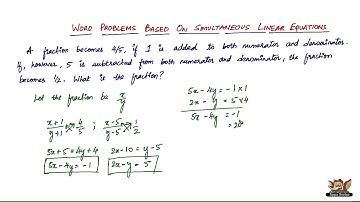 WORD PROBLEMS BASED ON SIMULTANEOUS LINEAR EQUATIONS
A fraction becomes 4/5, if 1 is added to both numerator and denominator.
If, however, 5 is subtracted from both numerator and denominator, the fraction
becomes 1/2. What is the fraction?
Let the fraction be x/y
(x+1)/(y+1) = 4/5 ; (x-5)/(y-5) = 1/2
5x+5 = 4y+4 2x-10 = y-5
5x-4y = -1 2x-y = 5
5x-4y = -1 × 1
2x - y = 5 × 4
5x-4y = -1
= 20